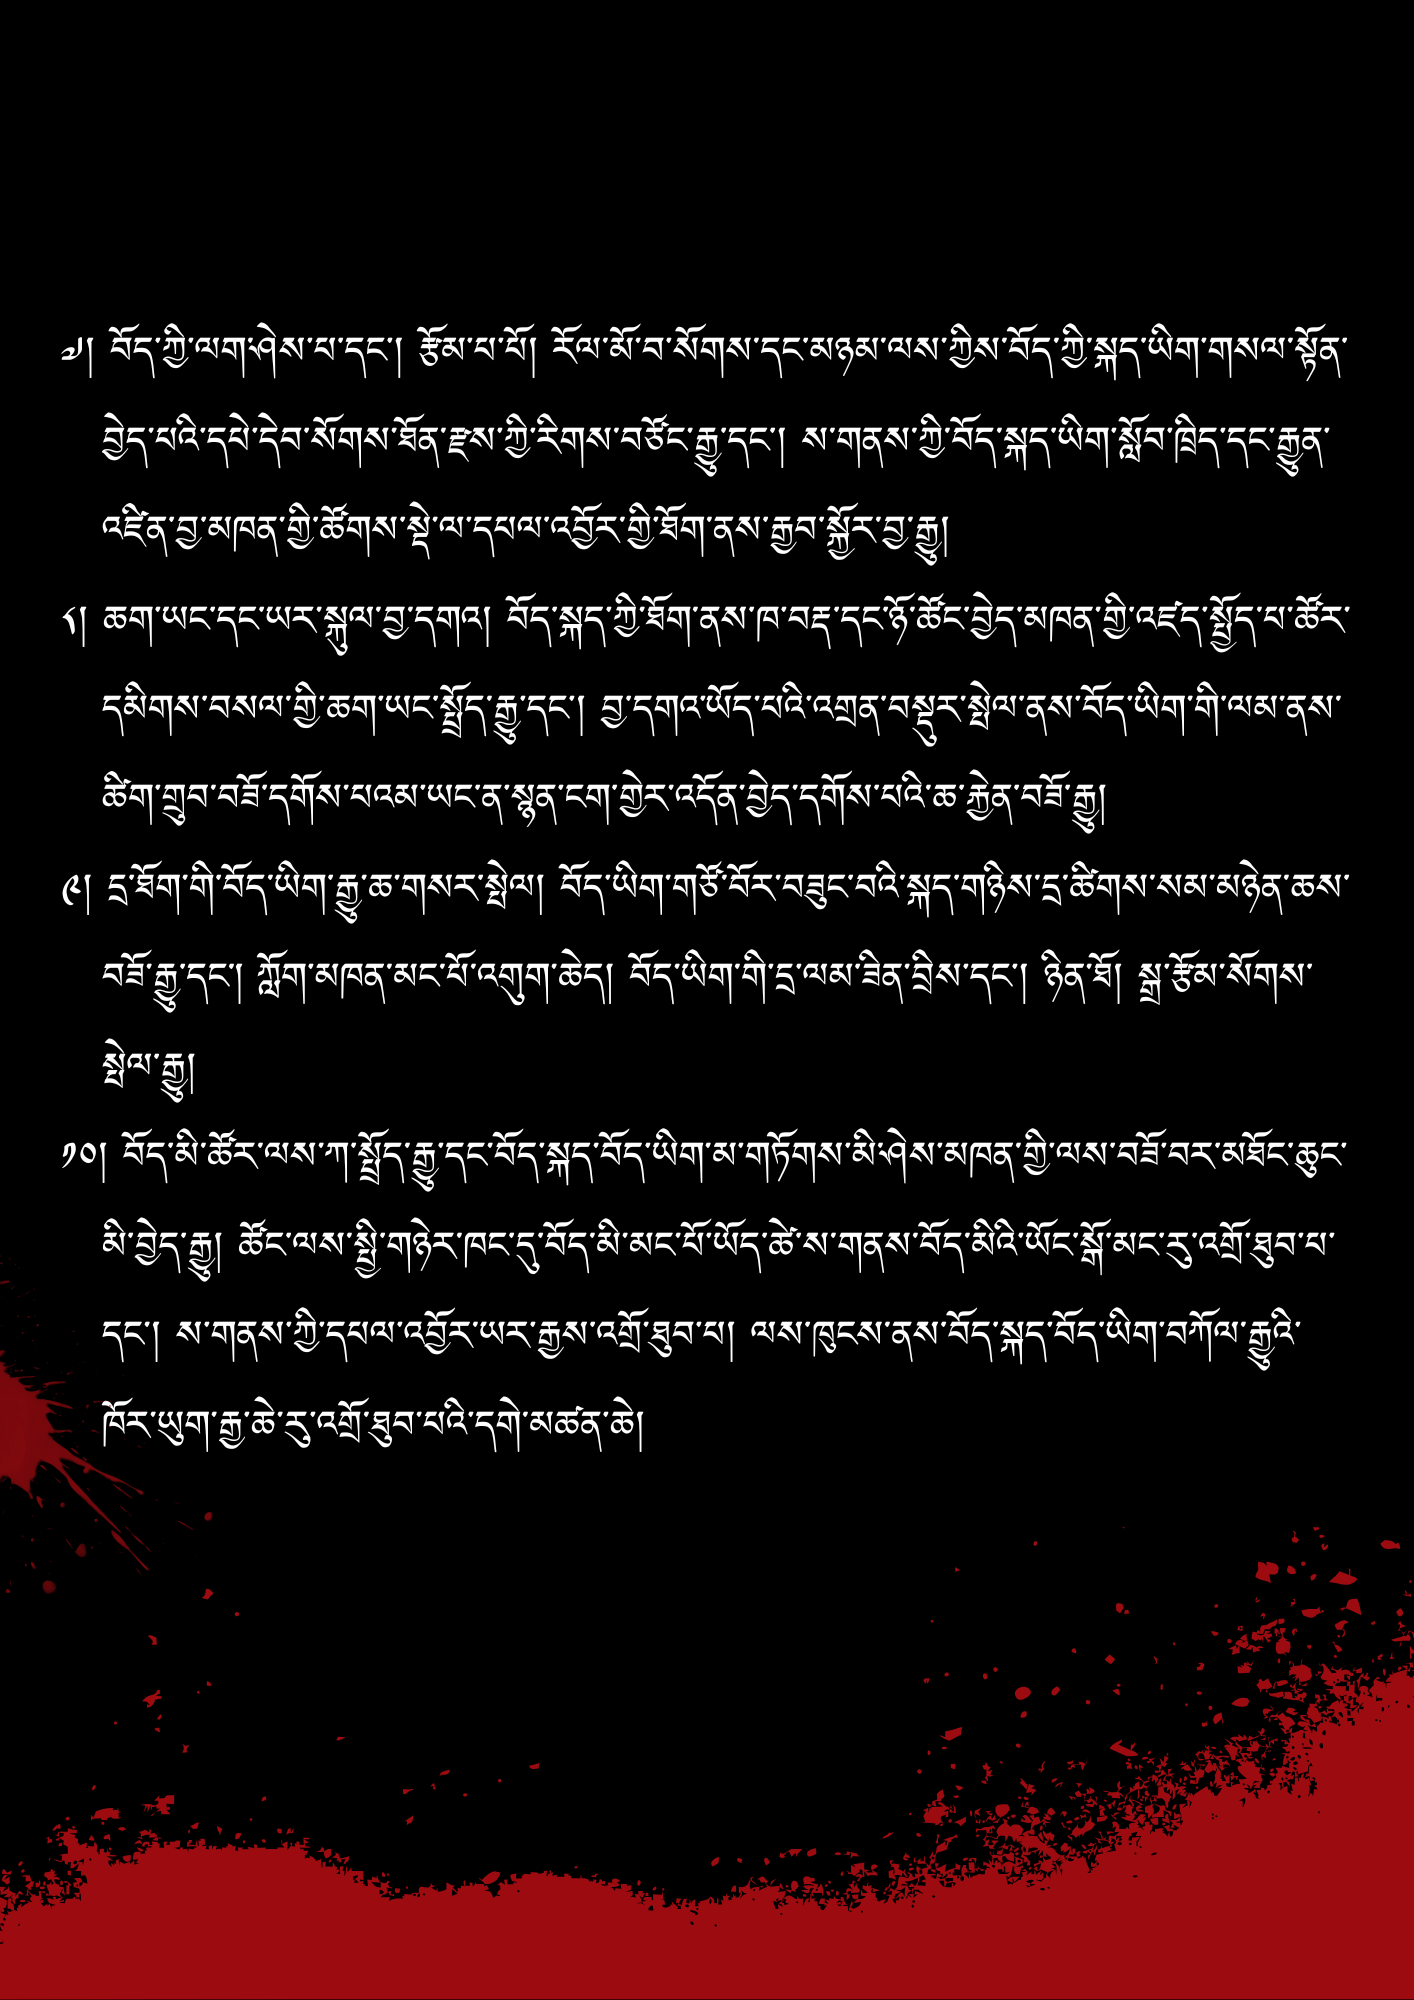 ༧། བོད་ཀྱི་ལག་ཤེས་པ་དང་། རྩོམ་པ་པོ། རོལ་མོ་བ་སོགས་དང་མཉམ་ལས་ཀྱིས་བོད་ཀྱི་སྐད་ཡིག་གསལ་སྟོན་
བྱེད་པའི་དཔེ་དེབ་སོགས་ཐོན་རྫས་ཀྱི་རིགས་བཙོང་རྒྱུ་དང་། ས་གནས་ཀྱི་བོད་སྐད་ཡིག་སློབ་ཁྲིད་དང་རྒྱུན་
འཛིན་བྱ་མཁན་གྱི་ཚོགས་སྡེ་ལ་དཔལ་འབྱོར་གྱི་ཐོག་ནས་རྒྱབ་སྐྱོར་བྱ་རྒྱུ།
༨། ཆག་ཡང་དང་ཡར་སྐུལ་བྱ་དགའ། བོད་སྐད་ཀྱི་ཐོག་ནས་ཁ་བརྡ་དང་ཉོ་ཚོང་བྱེད་མཁན་གྱི་འཛད་སྤྱོད་པ་ཚོར་
དམིགས་བསལ་གྱི་ཆག་ཡང་སྤྲོད་རྒྱུ་དང་། བྱ་དགའ་ཡོད་པའི་འགྲན་བསྡུར་སྤེལ་ནས་བོད་ཡིག་གི་ལམ་ནས་
ཚིག་གྲུབ་བཟོ་དགོས་པའམ་ཡང་ན་སྙན་ངག་གྱེར་འདོན་བྱེད་དགོས་པའི་ཆ་རྐྱེན་བཟོ་རྒྱུ།
༩། དྲ་ཐོག་གི་བོད་ཡིག་རྒྱུ་ཆ་གསར་སྤེལ། བོད་ཡིག་གཙོ་བོར་བཟུང་བའི་སྐད་གཉིས་དྲ་ཚིགས་སམ་མཉེན་ཆས་
བཟོ་རྒྱུ་དང་། ཀློག་མཁན་མང་པོ་འགུག་ཆེད། བོད་ཡིག་གི་དྲ་ལམ་ཟིན་བྲིས་དང་། ཉིན་ཐོ། སྒྲ་རྩོམ་སོགས་
སྤེལ་རྒྱུ།
༡༠། བོད་མི་ཚོར་ལས་ཀ་སྤྲོད་རྒྱུ་དང་བོད་སྐད་བོད་ཡིག་མ་གཏོགས་མི་ཤེས་མཁན་གྱི་ལས་བཟོ་བར་མཐོང་ཆུང་
མི་བྱེད་རྒྱུ། ཚོང་ལས་སྤྱི་གཉེར་ཁང་དུ་བོད་མི་མང་པོ་ཡོད་ཚེ་ས་གནས་བོད་མིའི་ཡོང་སྒོ་མང་རུ་འགྲོ་ཐུབ་པ་
དང་། ས་གནས་ཀྱི་དཔལ་འབྱོར་ཡར་རྒྱས་འགྲོ་ཐུབ་པ། ལས་ཁུངས་ནས་བོད་སྐད་བོད་ཡིག་བཀོལ་རྒྱུའི་
ཁོར་ཡུག་རྒྱ་ཆེ་རུ་འགྲོ་ཐུབ་པའི་དགེ་མཚན་ཆེ།